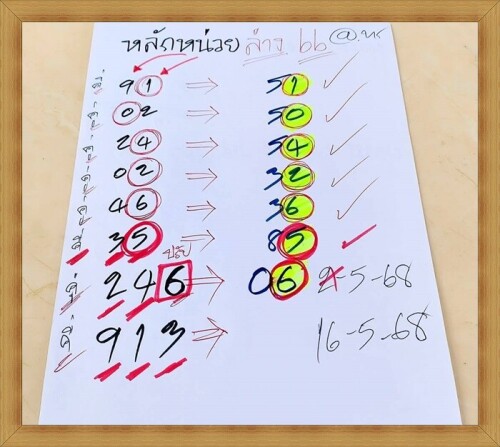 หลักหน่วย ล่าง 66
91 ⇒ 51 ✓
02 ⇒ 50 ✓
24 ⇒ 54 ✓
02 ⇒ 32 ✓
46 ⇒ 36 ✓
35 ⇒ 85 ✓
246 ⇒ 06 2-5-68
913 ⇒ 16-5-68